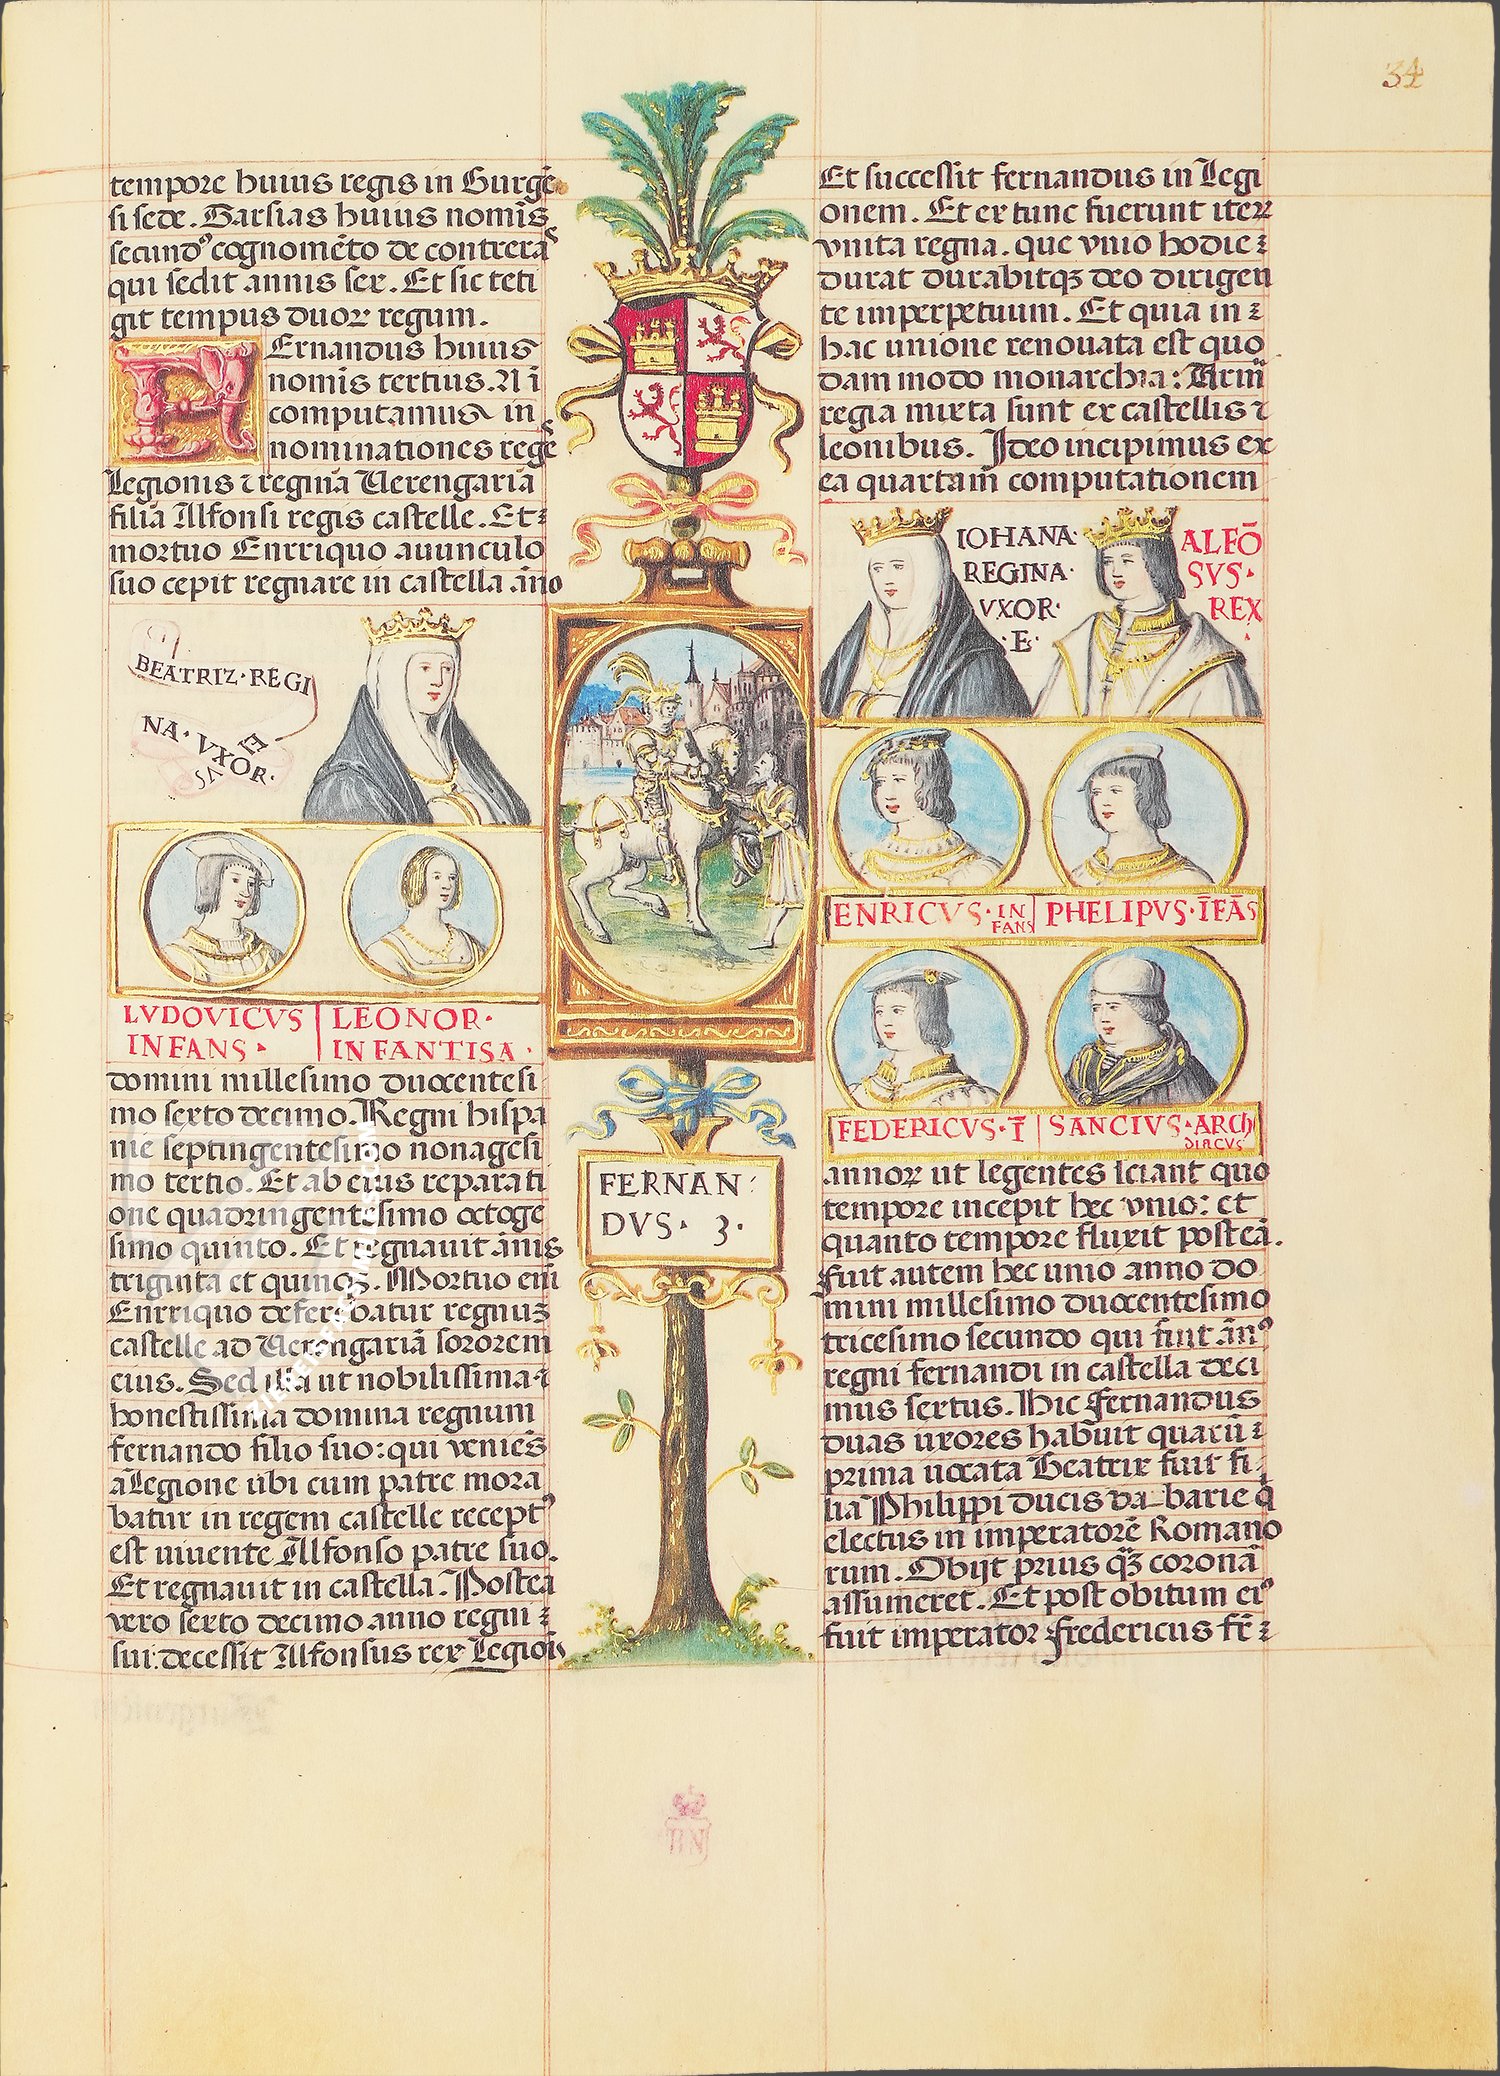 34
tempore huius regis in Burgē
si sede. Garsias huius nomīs
secund⁹ cognomēto de contreras
qui sedit annis sex. Et sic teti
git tempus duoꝝ regum.
FErnandus huius
nomīs tertius. Ni
computamus in
nominationes rege
Legionis ⁊ regina Verengaria
filia Alfonsi regis castelle. Et
mortuo Enrriquo auunculo
suo cepit regnare in castella āno
BEATRIZ·REGI
NA·VXOR·
E
SVA
LVDOVICVS
INFANS·
LEONOR·
INFANTISA·
domini millesimo ducentesi
mo sexto decimo. Regni hispa
nie septingentesimo nonagesi
mo tertio. Et ab eius reparati
one quadringentesimo octoge
simo quinto. Et regnauit ānis
triginta et quinqꝫ. Mortuo eni
Enrriquo deferebatur regnus
castelle ad Verengariā sororem
eius. Sed illa ut nobilissima ⁊
honestissima domina regnum
fernando filio suo: qui veniēs
a Legione ubi cum patre mora
batur in regem castelle recept⁹
est uiuente Alfonso patre suo.
Et regnauit in castella. Postea
vero sexto decimo anno regni
sui: decessit Alfonsus rex Legiois
FERNAN
DVS· 3·
Et successit fernandus in Legi
onem. Et ex tunc fuerunt iteꝝ
vnita regna. que vnio hodie
durat durabitqꝫ deo dirigen
te imperpetuum. Et quia in
hac unione renouata est quo
dam modo monarchia: Arm̄
regia mixta sunt ex castellis ⁊
leonibus. Ideo incipimus ex
ea quartam computationem
IOHANA·
REGINA·
VXOR·
·E·
ALFŌ
SVS·
REX
ENRICVS·INFANS
PHELIPVS·ĪFĀS
FEDERICVS·Ī
SANCIVS·ARCHIDIACVS
annoꝝ ut legentes sciant quo
tempore incepit hec vnio: et
quanto tempore fluxit posteā.
fuit autem hec unio anno do
mini millesimo ducentesimo
tricesimo secundo qui fuit ān⁹
regni fernandi in castella deci
mus sextus. Hic Fernandus
duas uxores habuit quarū
prima uocata Beatrix fuit fi
lia Philippi ducis va barie q̄
electus in imperatorē Romano
rum. Obijt prius qꝫ coronā
assumeret. Et post obitum ei⁹
fuit imperator fredericus fr̄
BN
ZIEREIS FAKSIMILES.COM